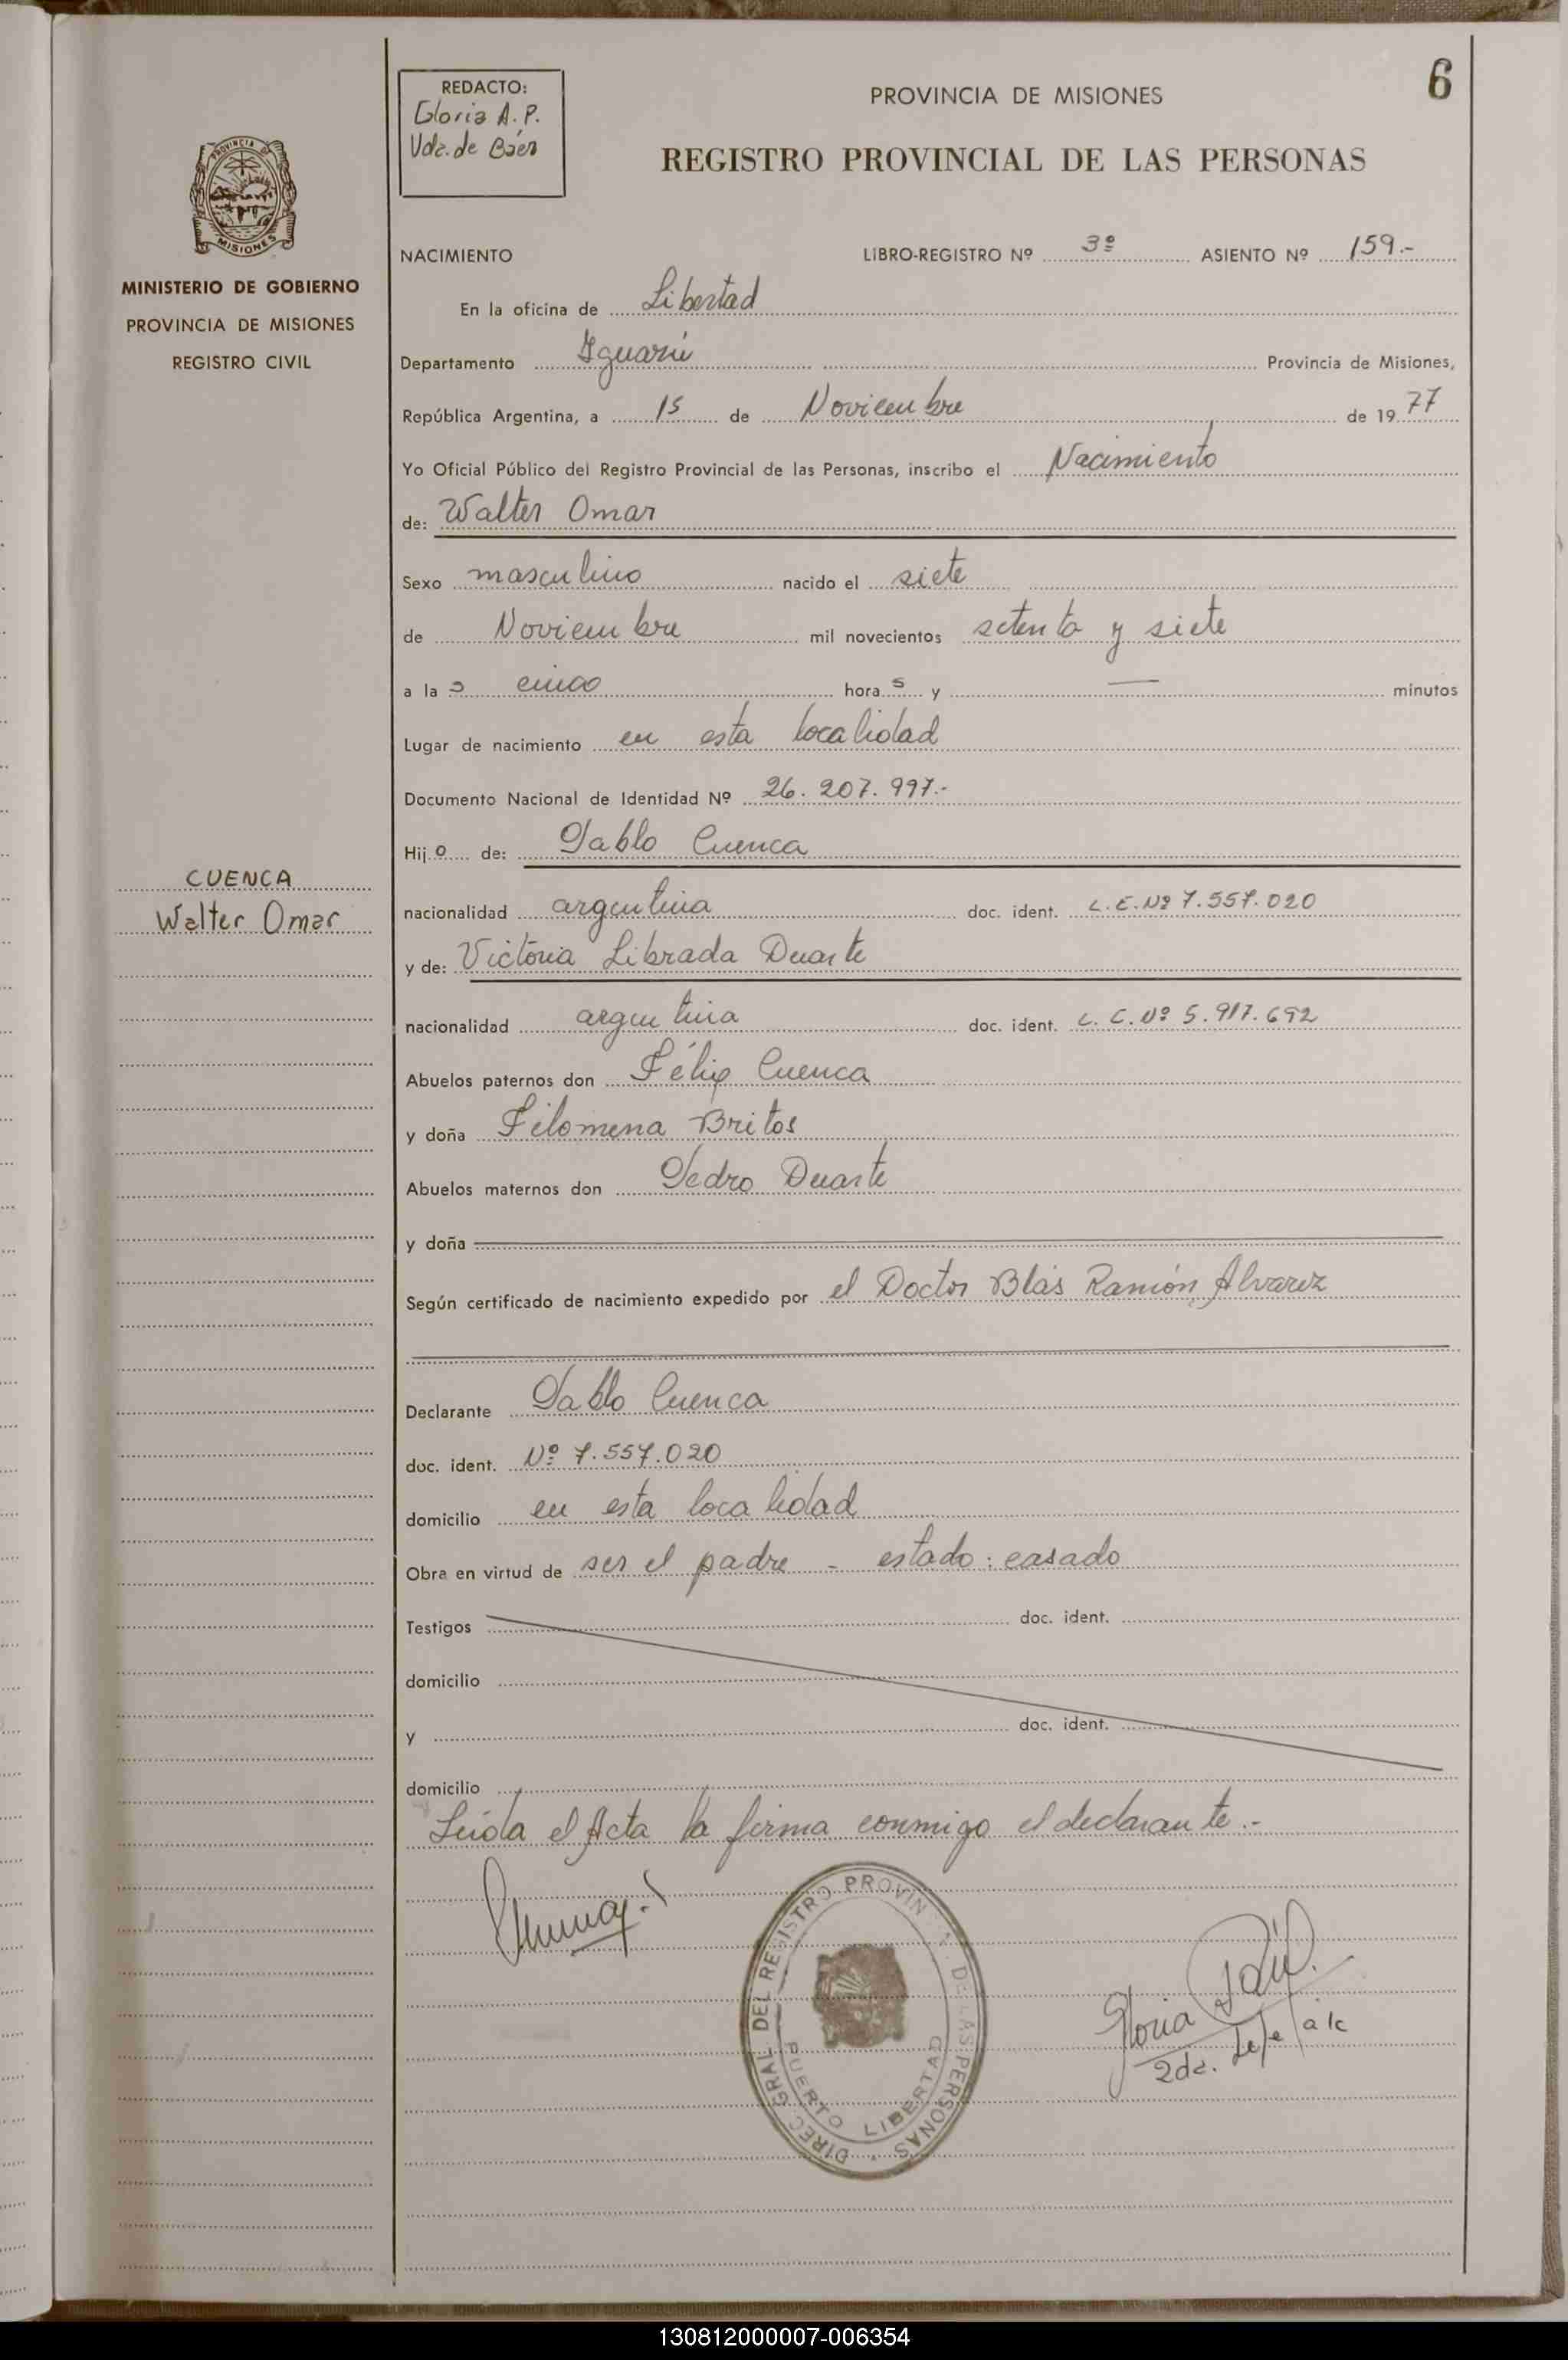 6
REDACTO:
Gloria A. P.
Vda. de Báez
PROVINCIA DE MISIONES
REGISTRO PROVINCIAL DE LAS PERSONAS
PROVINCIA DE
MISIONES
MINISTERIO DE GOBIERNO
PROVINCIA DE MISIONES
REGISTRO CIVIL
NACIMIENTO LIBRO-REGISTRO Nº 3º ASIENTO Nº 159.-
En la oficina de Libertad
Departamento Iguazú Provincia de Misiones,
República Argentina, a 15 de Noviembre de 1977
Yo Oficial Público del Registro Provincial de las Personas, inscribo el Nacimiento
de: Walter Omar
Sexo masculino nacido el siete
de Noviembre mil novecientos setenta y siete
a la s cinco hora s y — minutos
Lugar de nacimiento en esta localidad
Documento Nacional de Identidad Nº 26.207.997.-
Hijo de: Pablo Cuenca
CUENCA
Walter Omar
nacionalidad argentina doc. ident. L.E.Nº 7.557.020
y de: Victoria Librada Duarte
nacionalidad argentina doc. ident. L.C.Nº 5.917.692
Abuelos paternos don Félix Cuenca
y doña Filomena Britos
Abuelos maternos don Pedro Duarte
y doña
Según certificado de nacimiento expedido por el Doctor Blás Ramón Alvarez
Declarante Pablo Cuenca
doc. ident. Nº 7.557.020
domicilio en esta localidad
Obra en virtud de ser el padre - estado: casado
Testigos doc. ident.
domicilio
y doc. ident.
domicilio
Leída el Acta la firma conmigo el declarante.-
DIREC. GRAL. DEL REGISTRO PROVIN DE LAS PERSONAS
PUERTO LIBERTAD
Gloria
2da. Jefe a/c
130812000007-006354